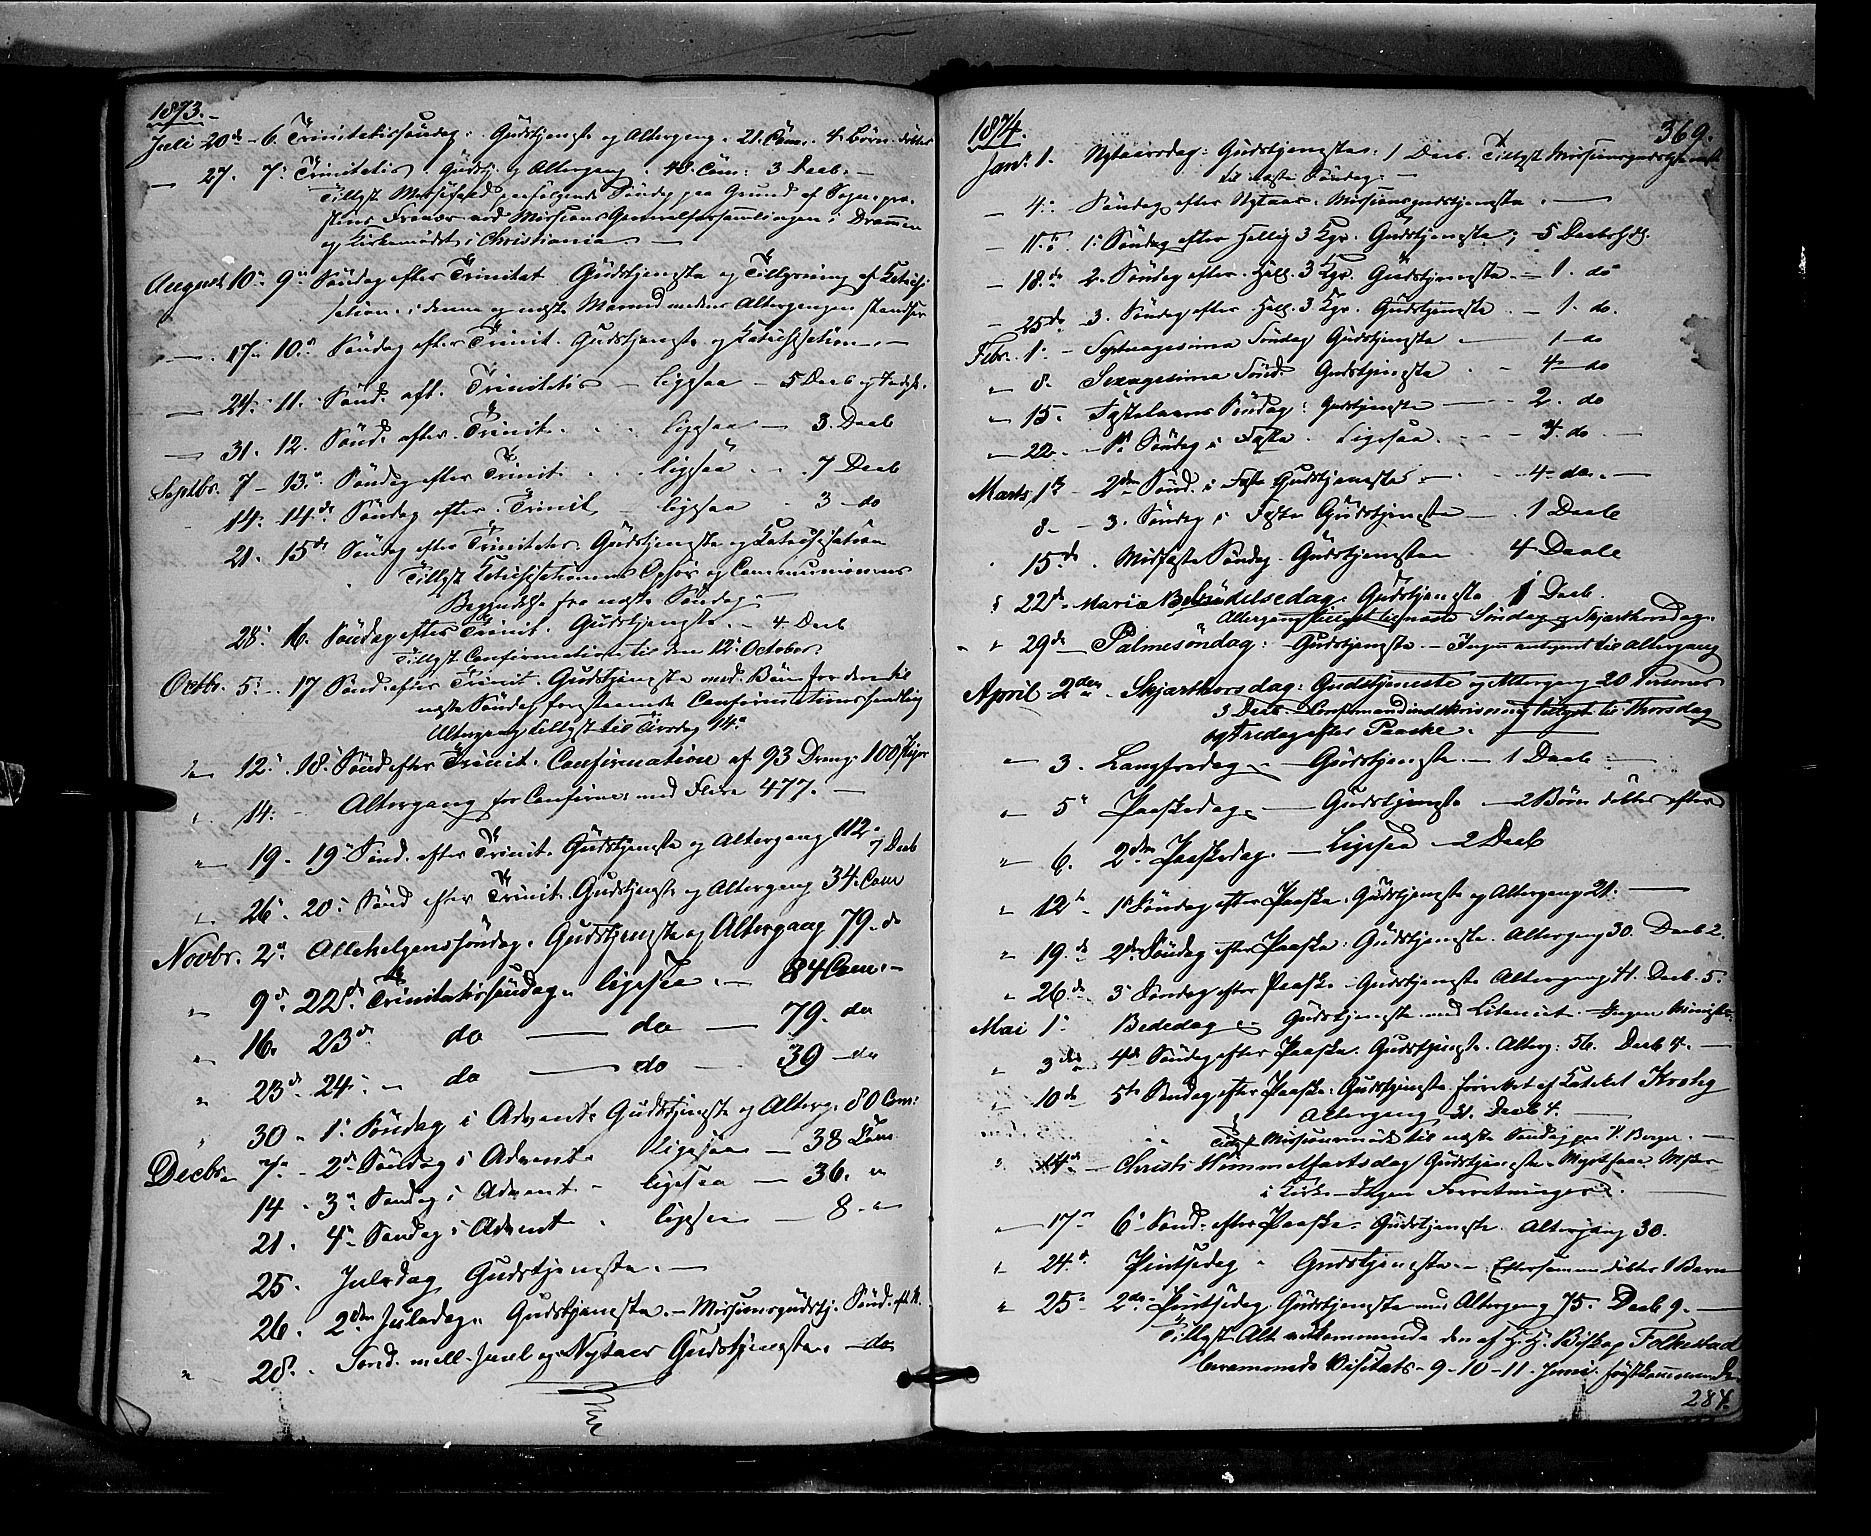 1873.
Juli 20de - 6. Trinitatissøndag: Gudstjeneste og Altergang. 21 Com. 4 Børn døbte
— 27. 7. Trinitatis. Gudstj. og Altergang. 48. Com: 3 Daab. —
Tillyst Messefald paafølgende Søndag paa Grund af Sognepræ-
stens Fravær ved Missions Generalforsamlingen i Drammen
og Kirkemødet i Christiania. —
August 10de 9de Søndag efter Trinitat. Gudstjeneste og Tillysning af Katechi-
sation i denne og næste Maaned medens Altergangen standser
— 17. 10de Søndag efter Trinit. Gudstjeneste og Katechisation. —
— 24. 11. Sønd. eft. Trinitatis — ligesaa — 5 Daab og
— 31. 12. Sønd. efter Trinit. . . ligesaa — 3. Daab
Septbr. 7 - 13de Søndag efter Trinit. . . ligesaa . . 7 Daab
14. 14de Søndag efter Trinit. — ligesaa - 3 - do
21. 15de Søndag efter Trinitatis. Gudstjeneste og Katechisation
Tillyst Katechisationens Ophør og Communionens
Begyndelse fra næste Søndag. —
28. 16. Søndag efter Trinit. Gudstjeneste. - 4 Daab
Tillyst Confirmation til den 12te October.
Octbr. 5. . 17 Sønd. efter Trinit. Gudstjeneste med Bøn for den til
næste Søndag forestaaende Confirmationshandling
Altergang tillyst til Tirsdag 14de
" 12. . 18. Sønd. efter Trinit. Confirmation af 93 Drenge 100 Piger
" 14. - Altergang for Confirm. med Flere 477. —
" 19 - 19 Sønd. efter Trinit. Gudstjeneste og Altergang 112.
7 Daab
" 26. 20. Sønd efter Trinit. Gudstjeneste og Altergang 34. Com
Novbr. 2de Allehelgenssøndag. Gudstjeneste og Altergang 79. do
" 9de 22de Trinitatissøndag. ligesaa. — 84 Com. —
" 16. 23de do — do — 79. do
" 23de 24. - do — do — 39 - do
" 30 - 1. Søndag i Advent. Gudstjeneste og Alterg. 80 Com:
Decbr. 7. - 2de Søndag i Advent. Ligesaa — 38 Com
14 - 3de Søndag i Advent. - ligesaa — 36. "
21. 4de Søndag i Advent . ligesaa — 8. "
25. Juledag Gudstjeneste. —
26. 2den Juledag. Gudstjeneste. - Missionsgudstj. Sønd. eft. N.
" 28. Sønd. mell. Juul og Nytaar Gudstjeneste. — do
1874. 369.
Janr. 1. Nytaarsdag: Gudstjeneste. 1 Daab. Tillyst Missionsgudstjeneste
til næste Søndag. —
— 4. Søndag efter Nytaar. Missionsgudstjeneste. —
— 11te 1. Søndag efter Hellig 3 Kgr. Gudstjeneste; 5
— 18de 2. Søndag efter Hell. 3 Kgr. Gudstjeneste. - 1. do
— 25de 3. Søndag efter Hell. 3 Kgr. Gudstjeneste. - 1. do.
Febr. 1. - Septuagesima Søndag Gudstjeneste — 1 do
" 8. Sexagesima Sønd. Gudstjeneste . - 4 - do
" 15. Fastelavns Søndag: Gudstjeneste — 2. do
" 22. 1ste Søndag i Faste. Ligesaa. - - 4. do —
Marts 1ste - 2den Sønd. i Faste Gudstjeneste. — 4 - do. —
8. - 3. Søndag i Faste Gudstjeneste — 1 Daab
15de . Midfaste Søndag. Gudstjeneste 4 Daab
" 22de Mariæ Bebudelsesdag. Gudstjeneste 1 Daab.
Altergang tillyst til næste Søndag og Skjærthorsdag.
" 29de Palmesøndag: Gudstjeneste. - Ingen antegnet til Altergang
April 2den. Skjærthorsdag: Gudstjeneste og Altergang 20 Personer
3 Daab. Confirmandindskrivning tillyst til Thorsdag
og Fredag efter Paaske.
" 3. Langfredag. — Gudstjeneste. — 1 Daab —
" 5te Paaskedag. — Gudstjeneste — 2 Børn døbte efter
" 6. 2den Paaskedag. — Ligesaa — 2 Daab
" 12te - 1ste Søndag efter Paaske. Gudstjeneste og Altergang 21. —
" 19de 2den Søndag efter Paaske. Gudstjeneste. Altergang 30. Daab 2.
" 26de 3. Søndag efter Paaske - Gudstjeneste Altergang 41. Daab. 5.
Mai 1. Bededag. - Gudstjeneste med Litaniet. Ingen
" 3die 4de Søndag efter Paaske. Gudstjeneste. Alterg: 56. Daab 4. —
" 10de 5te Søndag efter Paaske. Gudstjeneste forrettet af Katechet Krohg
Altergang 31. Daab 4. —
Tillyst Missionsmøde til næste Søndag paa N. Berger. —
" 14de - Christi Himmelfartsdag Gudstjeneste.
i Kirke - Ingen Forretninger. —
— 17de 6te Sønd. efter Paaske. Gudstjeneste. Altergang 30.
" 24de Pintsedag - Gudstjeneste. - Eftersammen døbtes 1 Barn
" 25de 2den Pintsedag. Gudstjeneste med Altergang 75. Daab 9. —
Tillyst Alt vedkommende den af H. H. Biskop Folkestad
beramмede Visitats - 9 - 10 - 11. Juni førstkommende.
284.